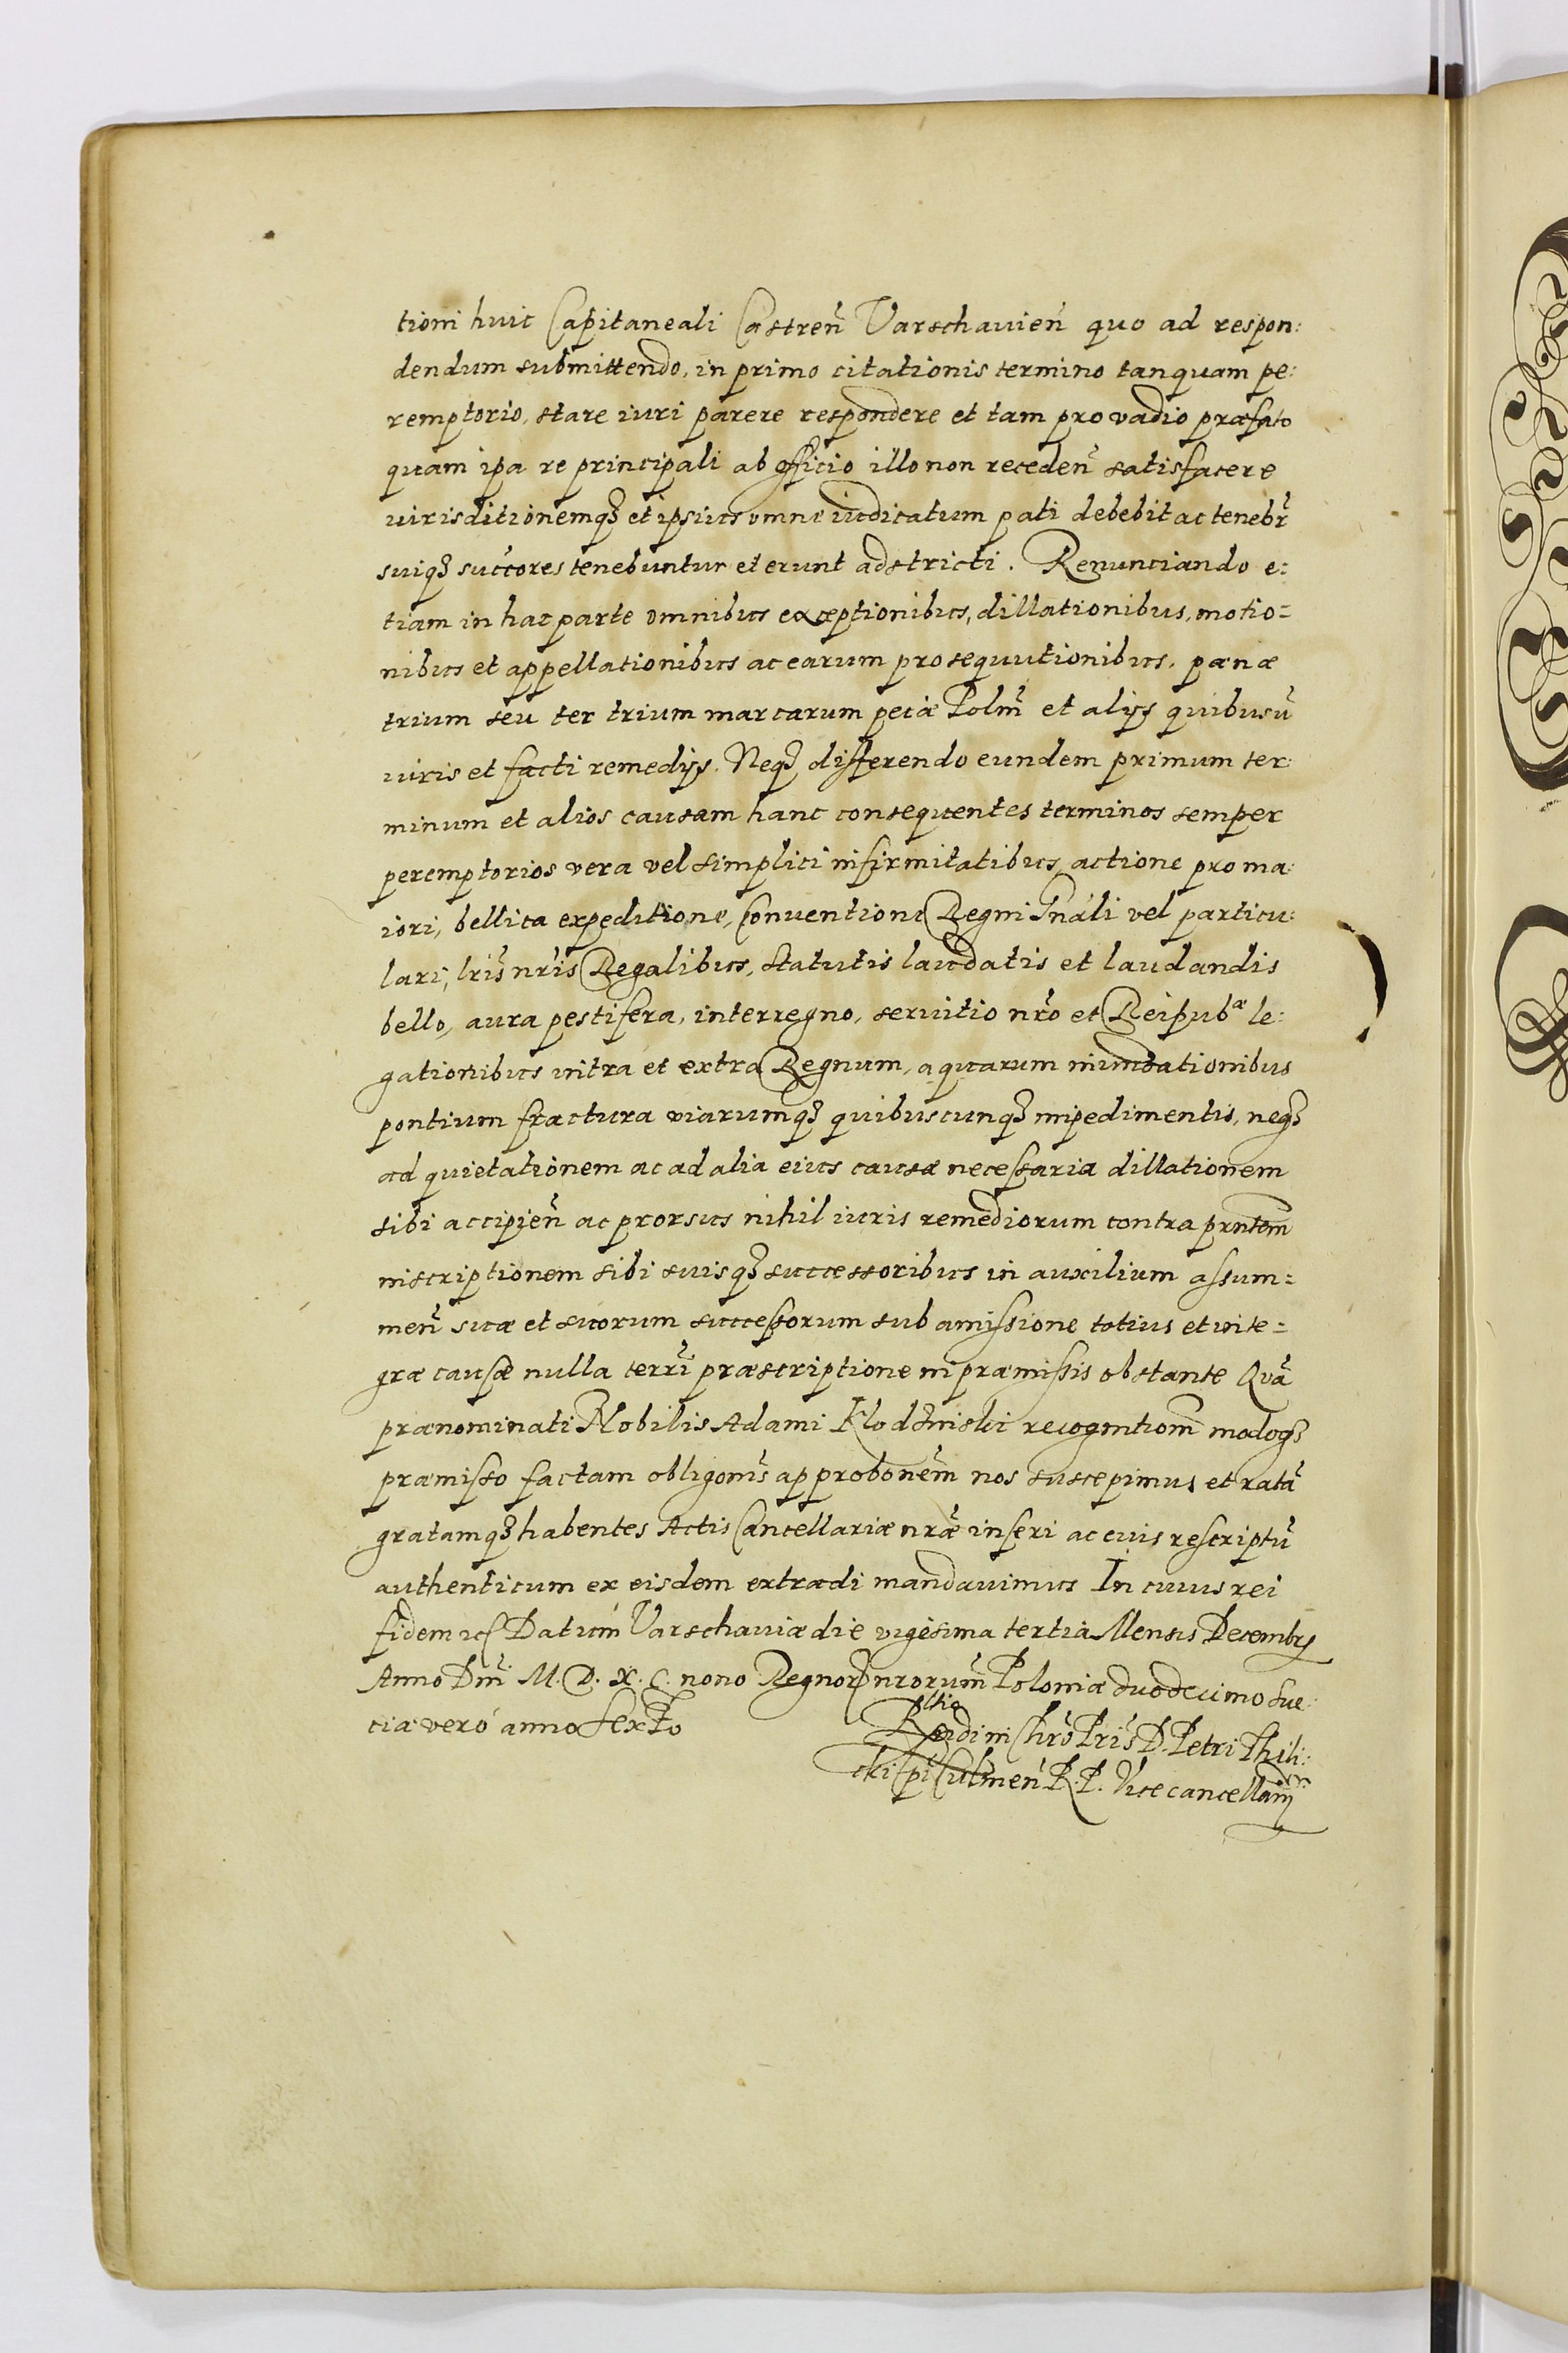 tioni huic Capitaneali Castren̄ Varschauien̄ quo ad respon:
dendum submittendo, in primo citationis termino tanquam pe:
remptorio, stare iuri parere respondere et tam pro vadio præfato
quam ipa re principali ab officio illo non receden̄ satisfacere
iurisditionemqꝫ et ipsius omne iudicatum pati debebit ac tenebr̄
suiqꝫ succores tenebuntur et erunt adstricti. Renunciando e:
tiam in hac parte omnibus exceptionibus, dillationibus, motio=
nibus et appellationibus ac earum prosequutionibus, pænæ
trium seu ter trium marcarum peciæ Polm̄ et alijs quibusū
iuris et facti remedijs. Neqꝫ differendo eundem primum ter:
minum et alios causam hanc consequentes terminos semper
peremptorios vera vel simplici infirmitatibus, actione pro ma:
iori, bellica expeditione, Conuentione Regni Gnāli vel particu:
lari, lrīs nrīs Regalibus, statutis laudatis et laudandis
bello, aura pestifera, interregno, seruitio nrō et Reipubᵃ le:
gationibus intra et extra Regnum, aquarum inundationibus
pontium fractura viarumqꝫ quibuscunqꝫ impedimentis, neqꝫ
ad quietationem ac ad alia eius causæ necessaria dillationem
sibi accipien̄ ac prorsus nihil iuris remediorum contra prntem̄
inscriptionem sibi suisqꝫ successoribus in auxilium assum=
men̄ suæ et suorum successorum sub amissione totius et inte=
græ causæ nulla terrī præscriptione in præmissis obstante Quā
prænominati Nobilis Adami Klodzinski recognitiom̄ modoqꝫ
præmisso factam obligonīs approbonēm nos suscepimus et ratā
gratamqꝫ habentes Actis Cancellariæ nrǣ inseri ac eius rescriptū
authenticum ex eisdem extradi mandauimus In cuius rei
fidem ꝛcꝭ Datum Varschauiæ die vigesima tertia Mensis Decembrꝭ
Anno Dm̄ M. D. X. C. nono Regnorꝭ nrorum̄ Poloniæ duodecimo Sue:
ciæ vero anno sexto
Rltio
Rndi in Chrō Pris D. Petri Thili:
cki Epī Culmen̄ R. P. Vicecancellarij